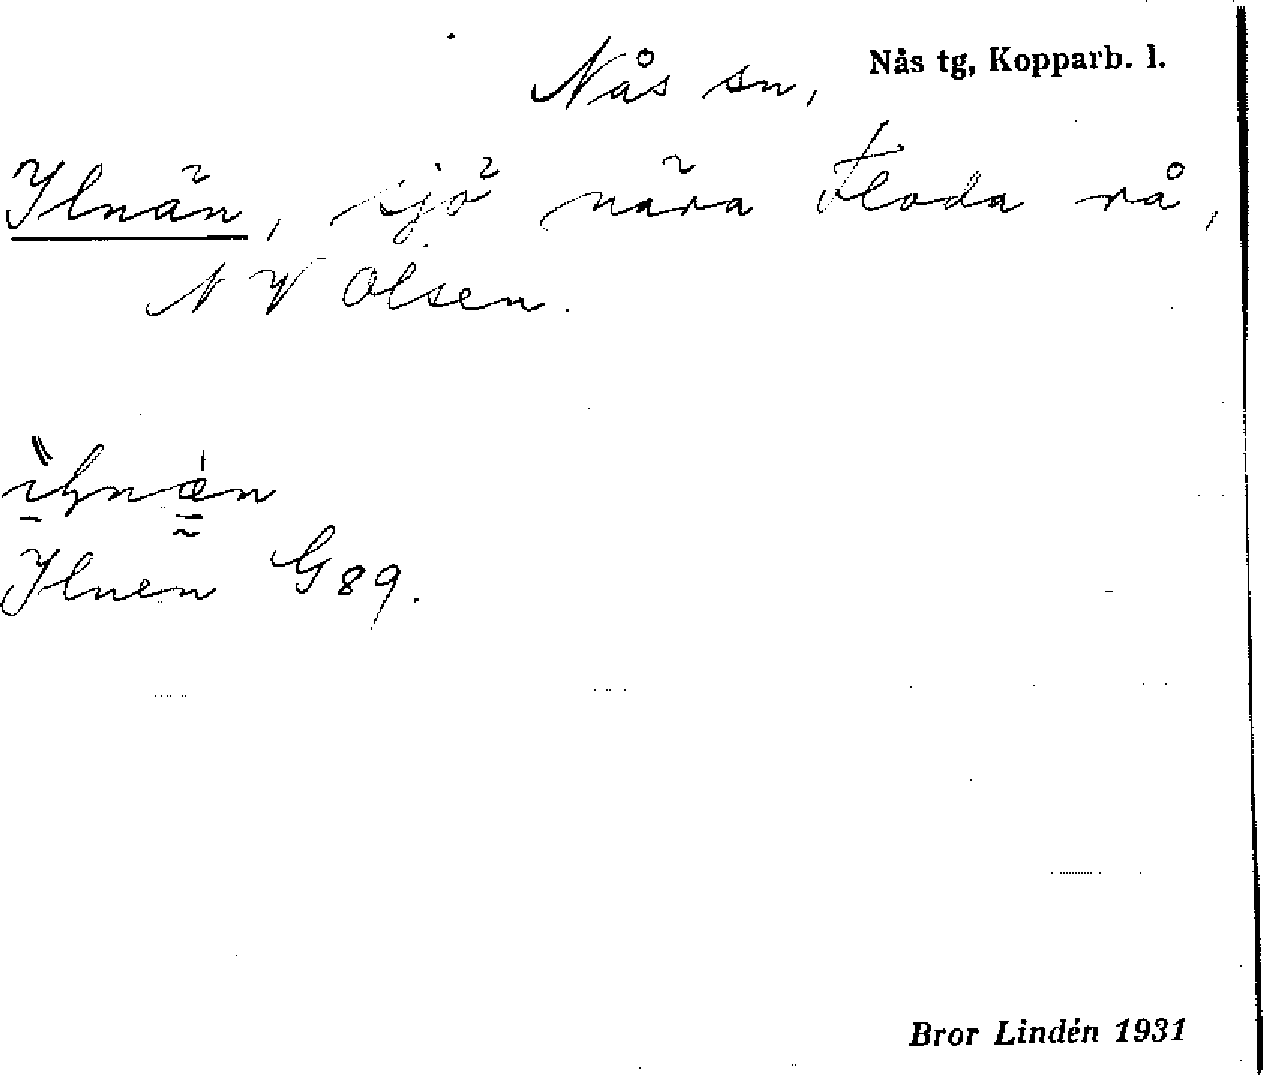 Nås sn, Nås tg, Kopparb. l.
Ilnän, sjö nära Floda rå,
N V Olsen.
Ilnen G 89.
Bror Lindén 1931